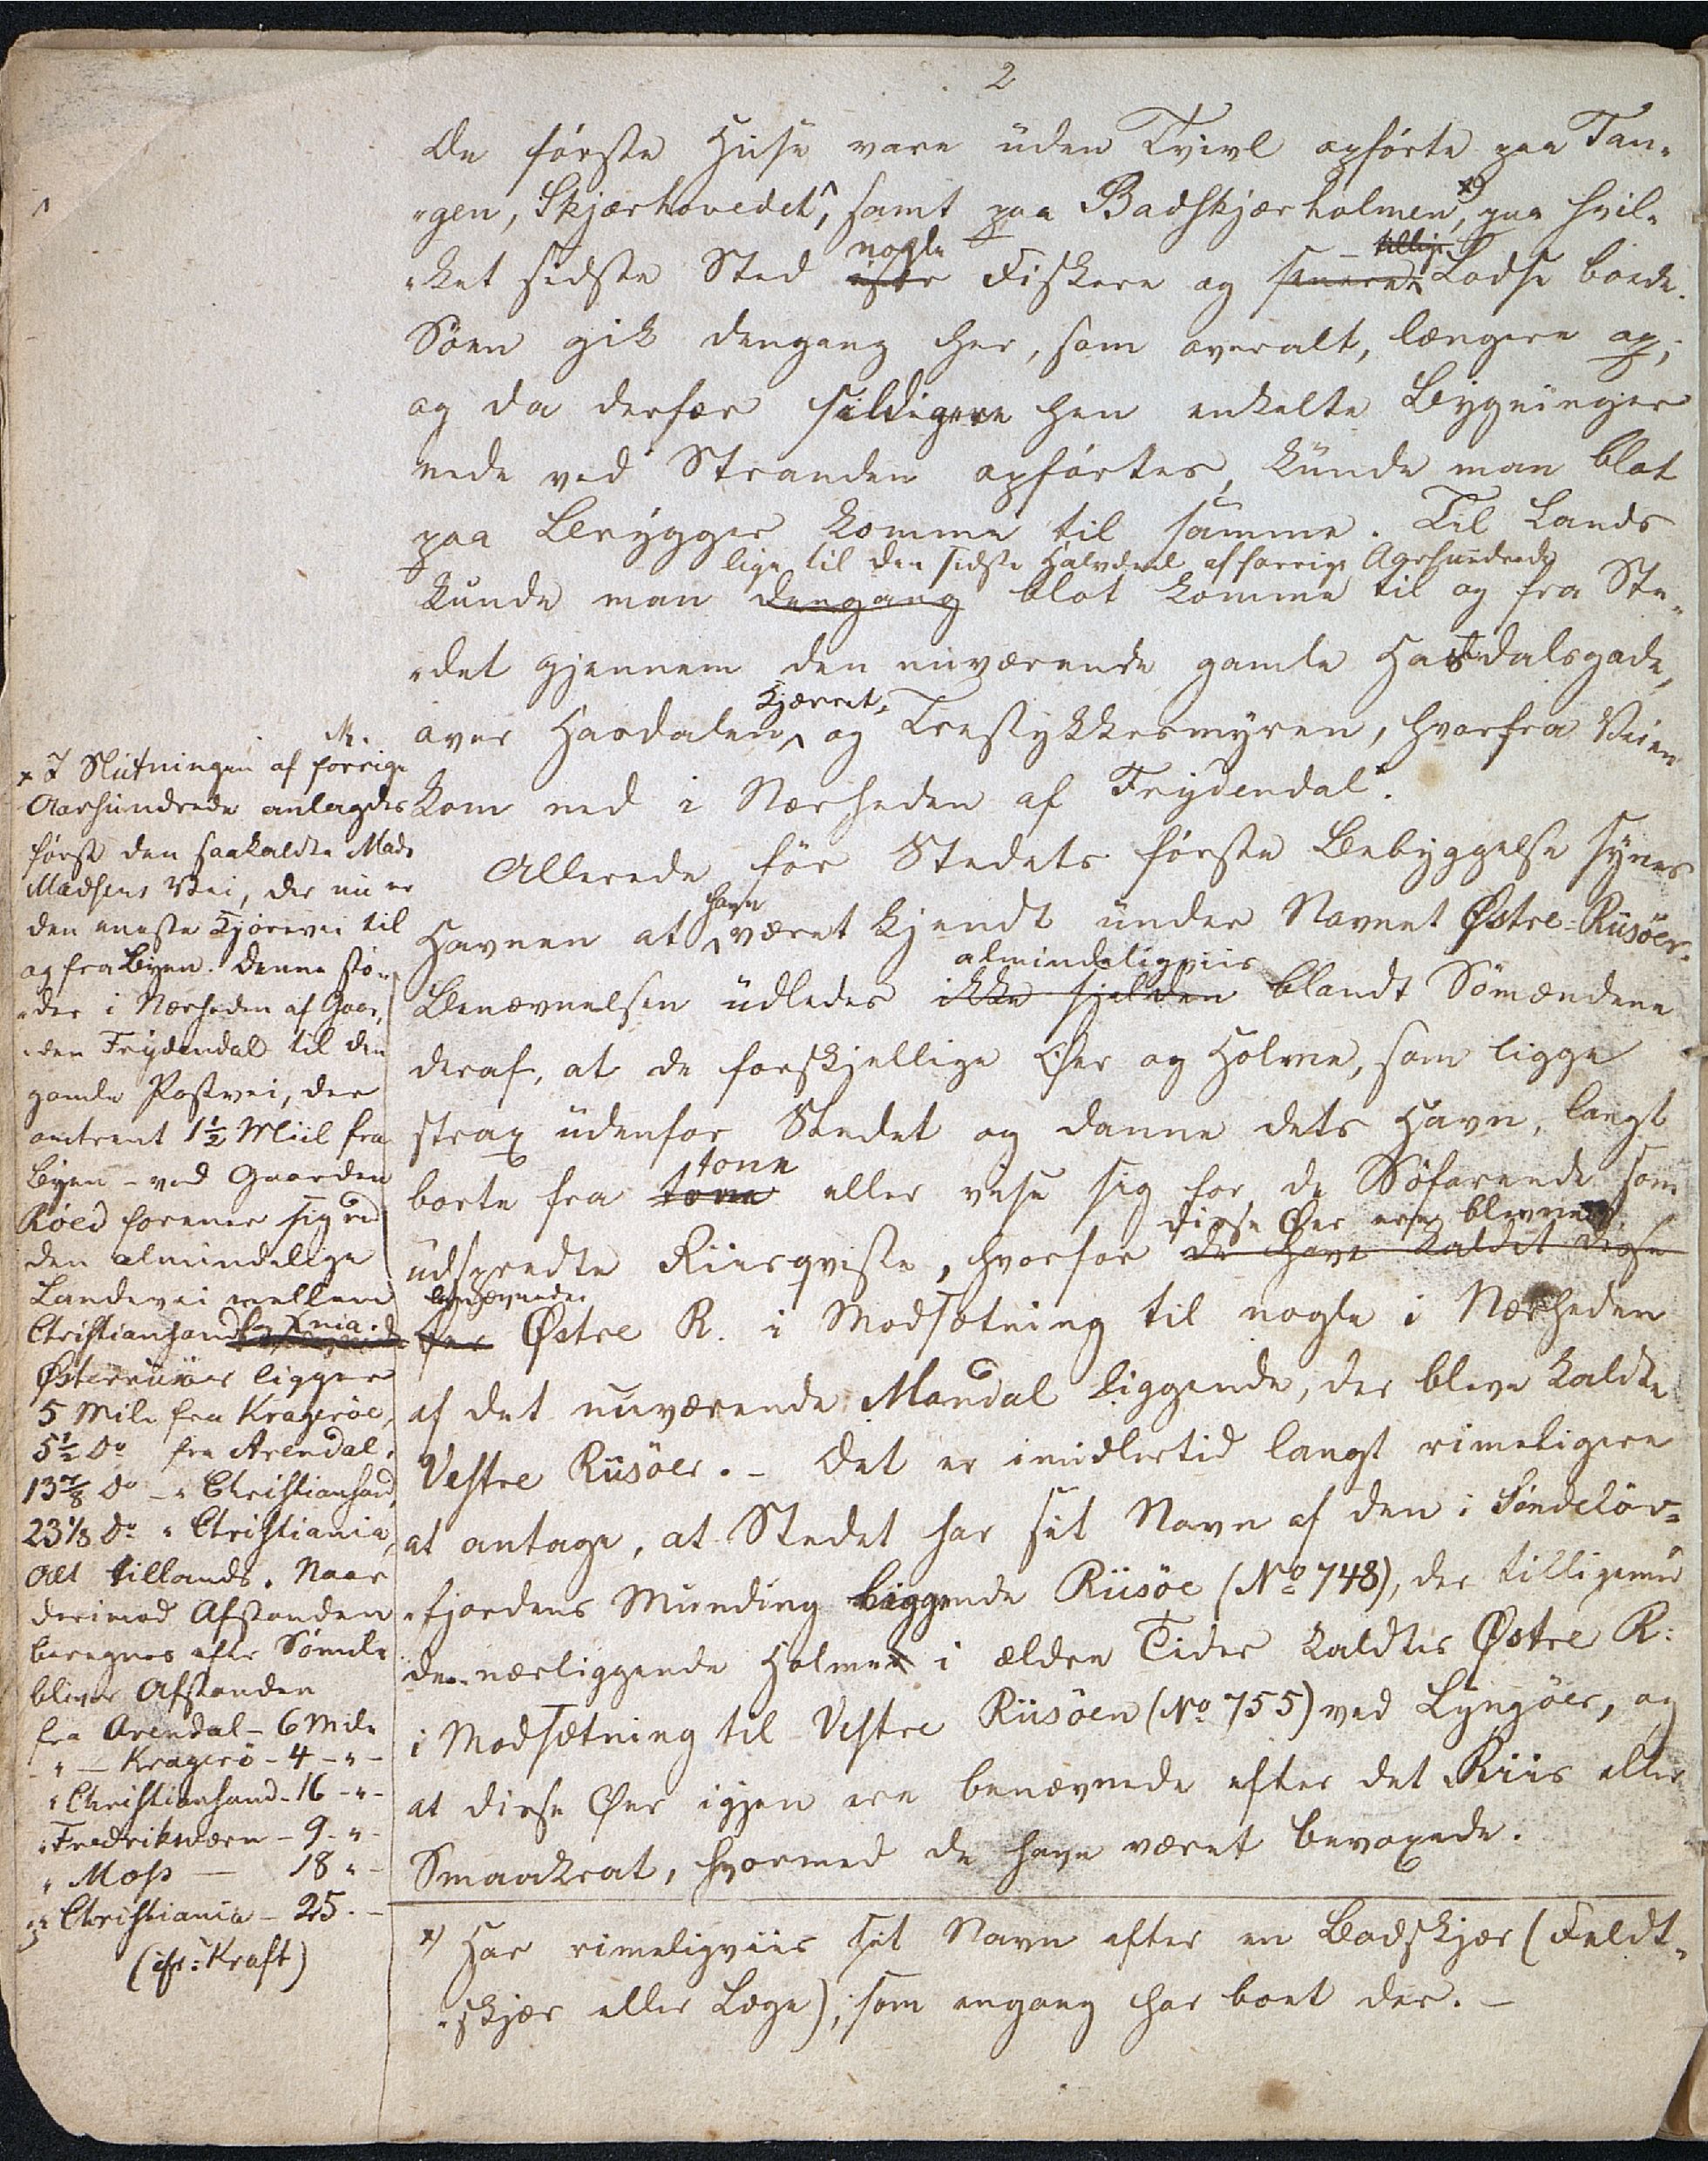 2
De første Huse vare uden Tvivl opførte paa Tan-
-gen, Skjærhovedet, samt paa Badskjærholmen x), paa hvil-
nogle tillige
-ket sidste Sted Fiskere og senere Lodse boede.
Söen gik dengang her, som overalt, længere op,
og da derfor sildigere hen enkelte Bygninger
nede ved Stranden opførtes, kunde man blot
paa Brygger komme til samme. Til Lands
lige til den sidste Halvdeel af forrige Aarhundrede
kunde man dengang blot komme til og fra Ste-
-det gjennem den nuværende gamle Hasdalsgade,
Kjærret,
over Hasdalen og Trestykkesmyren, hvorfra Veien
kom ned i Nærheden af Frydendal x.
Allerede før Stedets første Bebyggelse synes
have
Havnen at været kjendt under Navnet Østre-Riisöer.
almindeligviis
Benævnelsen udledes ikke sjelden blandt Sömændene
deraf, at de forskjellige Öer og Holme, som ligge
strax udenfor Stedet og danne dets Havn, langt
tone
borte fra tone eller vise sig for de Söfarende som
disse Øer ere blevne
udspredte Riisqviste, hvorfor de have kaldet disse
benævnede
Øer Østre R. i Modsætning til nogle i Nærheden
af det nuværende Mandal liggende, der bleve kaldte
Vestre Riisöer. - Det er imidlertid langt rimeligere
at antage, at Stedet har sit Navn af den i Söndelöv-
-fjordens Munding liggende Riisöe (No 748), der tilligemed
de nærliggende Holme i ældre Tider kaldtes Østre R:
i Modsætning til Vestre Riisöen (No 755) ved Lyngöer, og
at disse Øer igjen ere benævnede efter det Riis eller
Smaakrat, hvormed de have været bevoxede.
x) Har rimeligviis sit Navn efter en Badskjær (Feldt-
-skjær eller Læge), som engang har boet der. -
x I Slutningen af forrige
Aarhundrede anlagdes
først den saakaldte Mads
Madsens Vei, der nu er
den eneste Kjørevei til
og fra Byen. Denne stö-
-der i Nærheden af Gaar-
-den Frydendal til den
gamle Postvei, der
omtrent 1½ Miil fra
Byen - ved Gaarden
Röed forener sig med
den almindelige
Landevei mellem
Christiansand og Xnia.
Østerriisöer ligger
5 Mile fra Kragerøe,
5½ Do fra Arendal,
13⅞ Do - " Christiansand,
23⅛ Do " Christiania,
Alt tillands. Naar
derimod Afstanden
beregnes efter Sömile
bliver Afstanden
fra Arendal - 6 Mile
" - Kragerö - 4 - " -
" Christiansand - 16 - " -
" Fredriksværn - 9 - " -
" Moss - 18 " -
" Christiania - 25 - -
(cfr: Kraft)